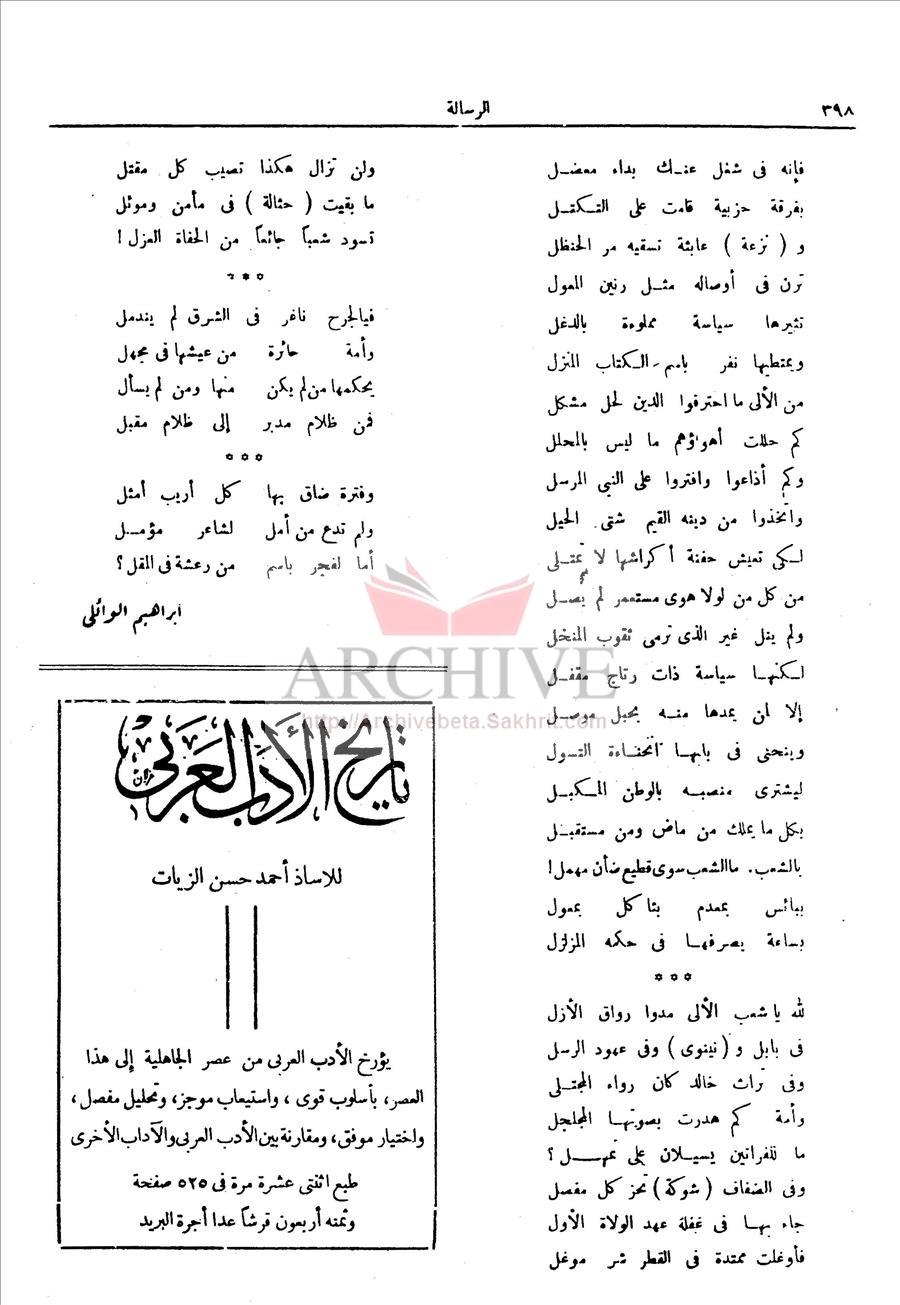 ٣٩٨
الرسالة
فإنه فى شغل عنك بداء معضل
بفرقة حزبية قامت على التكتل
و ( نزعة ) عابثة تسقيه مر الحنظل
ترن فى أوصاله مثل رنين المعول
تثيرها سياسة مملوءة بالدغل
ويمتطيها نفر باسم الكتاب المنزل
من الألى ما احترفوا الدين لحل مشكل
كم حللت أهواؤهم ما ليس بالمحلل
وكم أذاعوا وافتروا على النبى المرسل
واتخذوا من دينه القيم شتى الحيل
لكى تعيش حفنة أكراشها لا تمتلى
من كل من لولا هوى مستعمر لم يصل
ولم ينل غير الذى ترمى ثقوب المنخل
لكنها سياسة ذات رتاج مقفل
إلا لمن يمدها منه بحبل موصل
وينحنى فى بابها انحناءة التسول
ليشترى منصبه بالوطن المكبل
بكل ما يملك من ماض ومن مستقبل
بالشعب. ماالشعب سوى قطيع ضأن مهمل!
ببائس بمعدم بثاكل بمعول
بساعة يصرفها فى حكمه المزلزل
* * *
لله يا شعب الألى مدوا رواق الأزل
فى بابل و ( نينوى ) وفى عهود الرسل
وفى تراث خالد كان رواء المجتلى
وأمة كم هدرت بصوتها المجلجل
ما للفراتين يسيلان على تمهل ؟
وفى الضفاف ( شوكة ) تحز كل مفصل
جاء بها فى غفلة عهد الولاة الأول
فأوغلت ممتدة فى القطر شر موغل
ولن تزال هكذا تصيب كل مقتل
ما بقيت ( حثالة ) فى مأمن وموئل
تسود شعباً جائعاً من الحفاة العزل !
* * *
فيالجرح ناغر فى الشرق لم يندمل
وأمة حائرة من عيشها فى مجهل
يحكمها من لم يكن منها ومن لم يسأل
فمن ظلام مدبر إلى ظلام مقبل
* * *
وفترة ضاق بها كل أريب أمثل
ولم تدع من أمل لشاعر مؤمل
أما لفجر باسم من رعشة فى المقل ؟
ابراهيم الوائلى
ARCHIVE
http://Archivebeta.Sakhrit.com
تاريخ الأدب العربى
للاستاذ أحمد حسن الزيات
يؤرخ الأدب العربى من عصر الجاهلية إلى هذا
العصر، بأسلوب قوى ، واستيعاب موجز، وتحليل مفصل ،
واختيار موفق، ومقارنة بين الأدب العربى والآداب الأخرى
طبع اثنتى عشرة مرة فى ٥٢٥ صفحة
وثمنه أربعون قرشاً عدا أجرة البريد